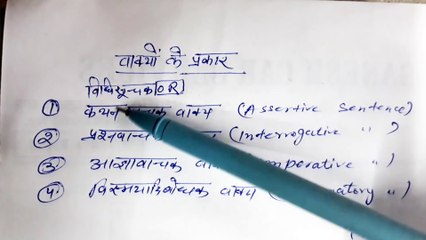 वाक्यों के प्रकार
विधिसूचक OR
① कथन वाचक वाक्य (Assertive Sentence)
② प्रश्नवाच (Interrogative " )
③ आज्ञावाचक वा perative " )
④ विस्मयादिबोधक वाक्य ( atory " )